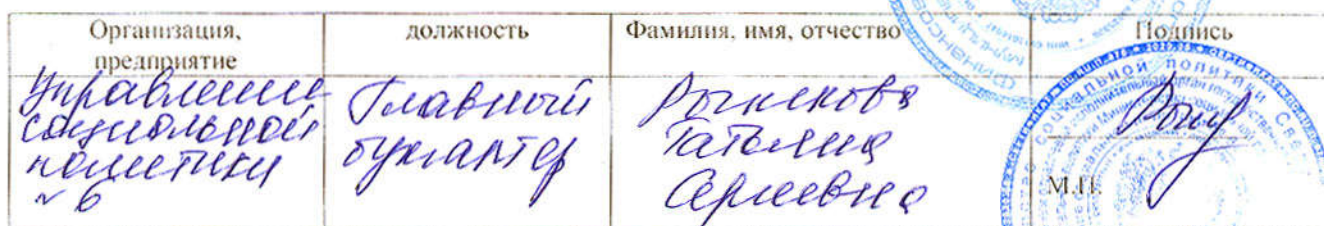 Организация, предприятие
должность
Фамилия, имя, отчество
Подпись
Управление
социальной
политики
№ 6
Главный
бухгалтер
Татьяна
Сергеевна
М.П.
социальной политики